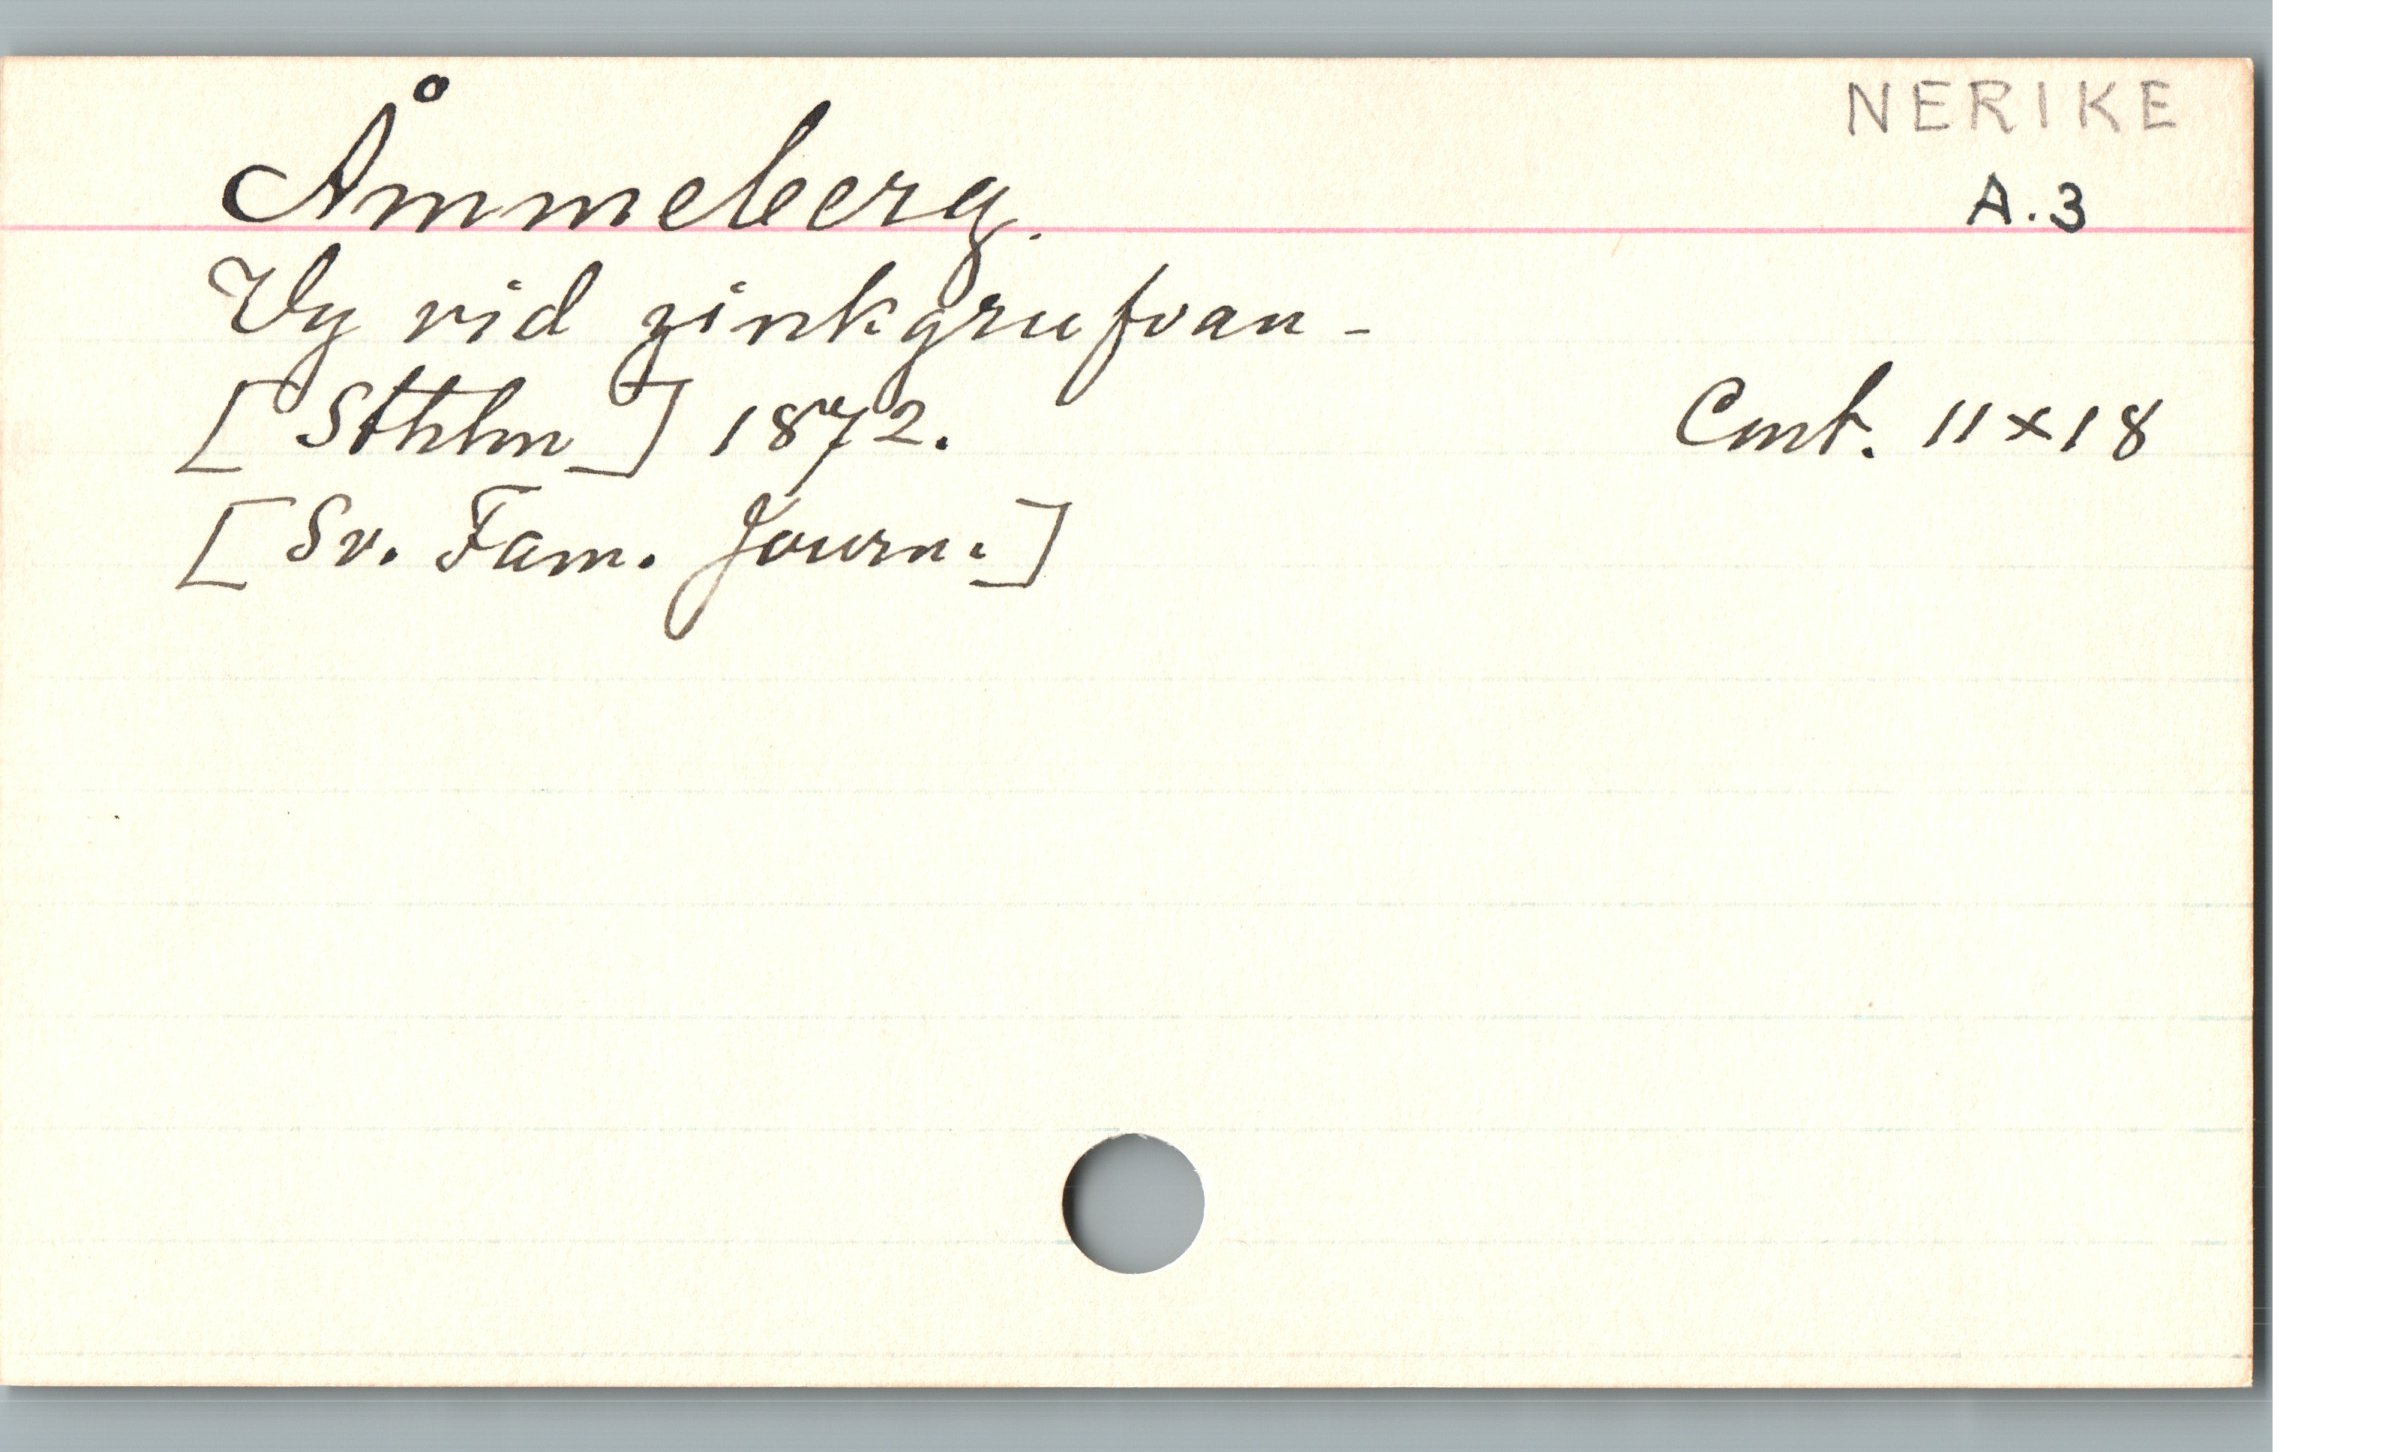 NERIKE
Åmmeberg.
A.3
Vy vid zinkgrufvan -
[Sthlm] 1872.
Cmt. 11x18
[Sv. Fam. Journ.]